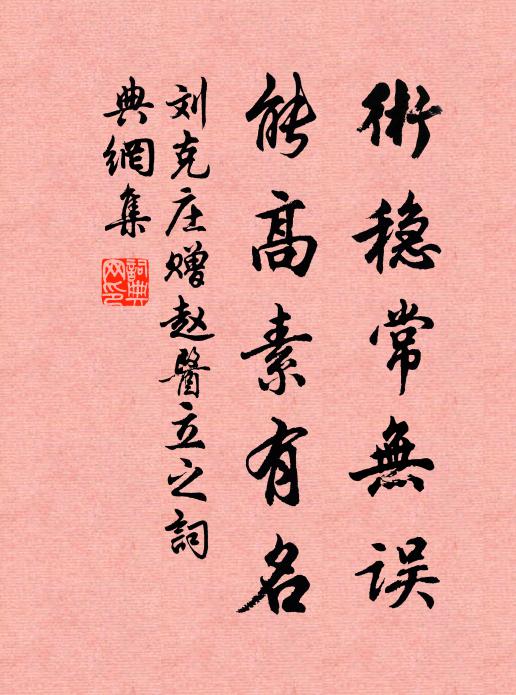 術稳常無误
能高素有名
刘克庄赠赵醫立之詞
典網集
詞典网印